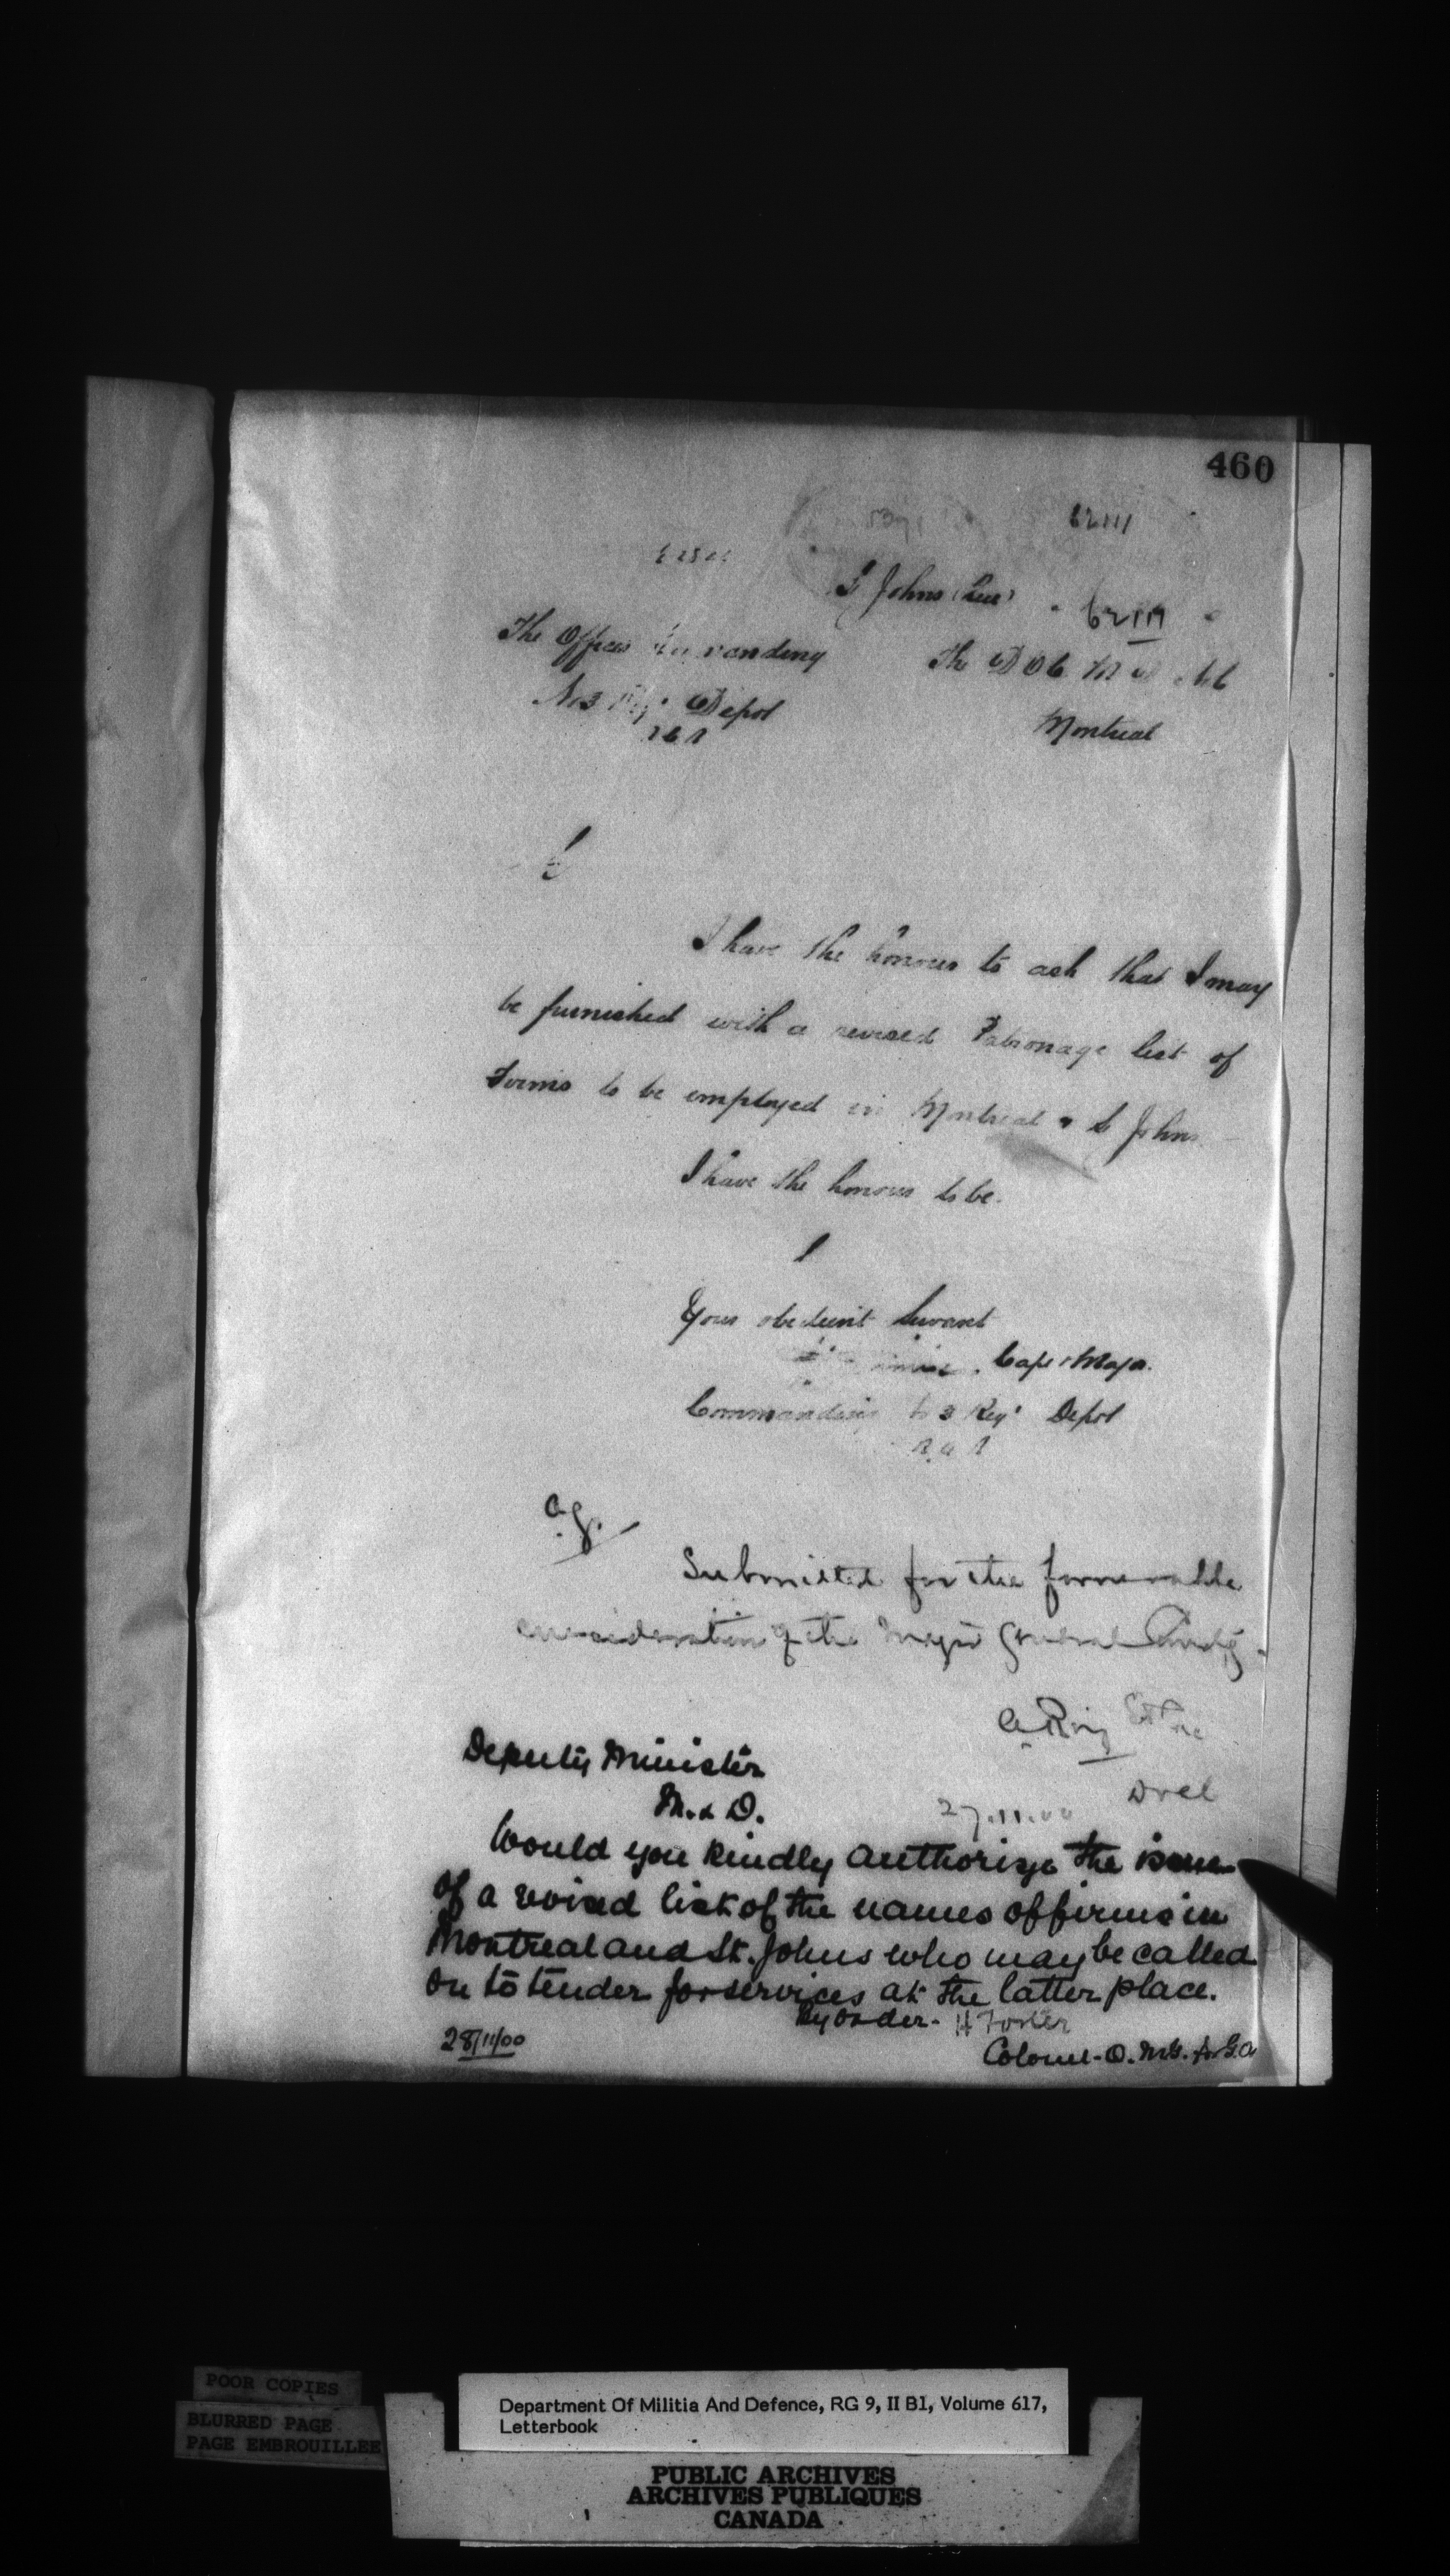 460
62111
St Johns (Que)
62111
The Officer Commanding
The D O C M D No 6
No 3 Reg. Depot
Montreal
I have the honour to ask that I may
be furnished with a revised Patronage list of
Firms to be employed in Montreal & St Johns
I have the honour to be.
Your obedient Servant
Capt & Major.
Commanding No 3 Reg' Depot
A.G.
Submitted for the favourable
consideration of the Major General Comdg.
A Roy
27.11.00
DOC
Deputy Minister
M. & D.
Would you kindly authorize the issue
of a revised list of the names of firms in
Montreal and St. Johns who may be called
on to tender for services at the latter place.
By Order- H Foster
28/11/00
Colonel-Q.M.G. for G.O
POOR COPIES
BLURRED PAGE
PAGE EMBROUILLEE
Department Of Militia And Defence, RG 9, II B1, Volume 617,
Letterbook
PUBLIC ARCHIVES
ARCHIVES PUBLIQUES
CANADA